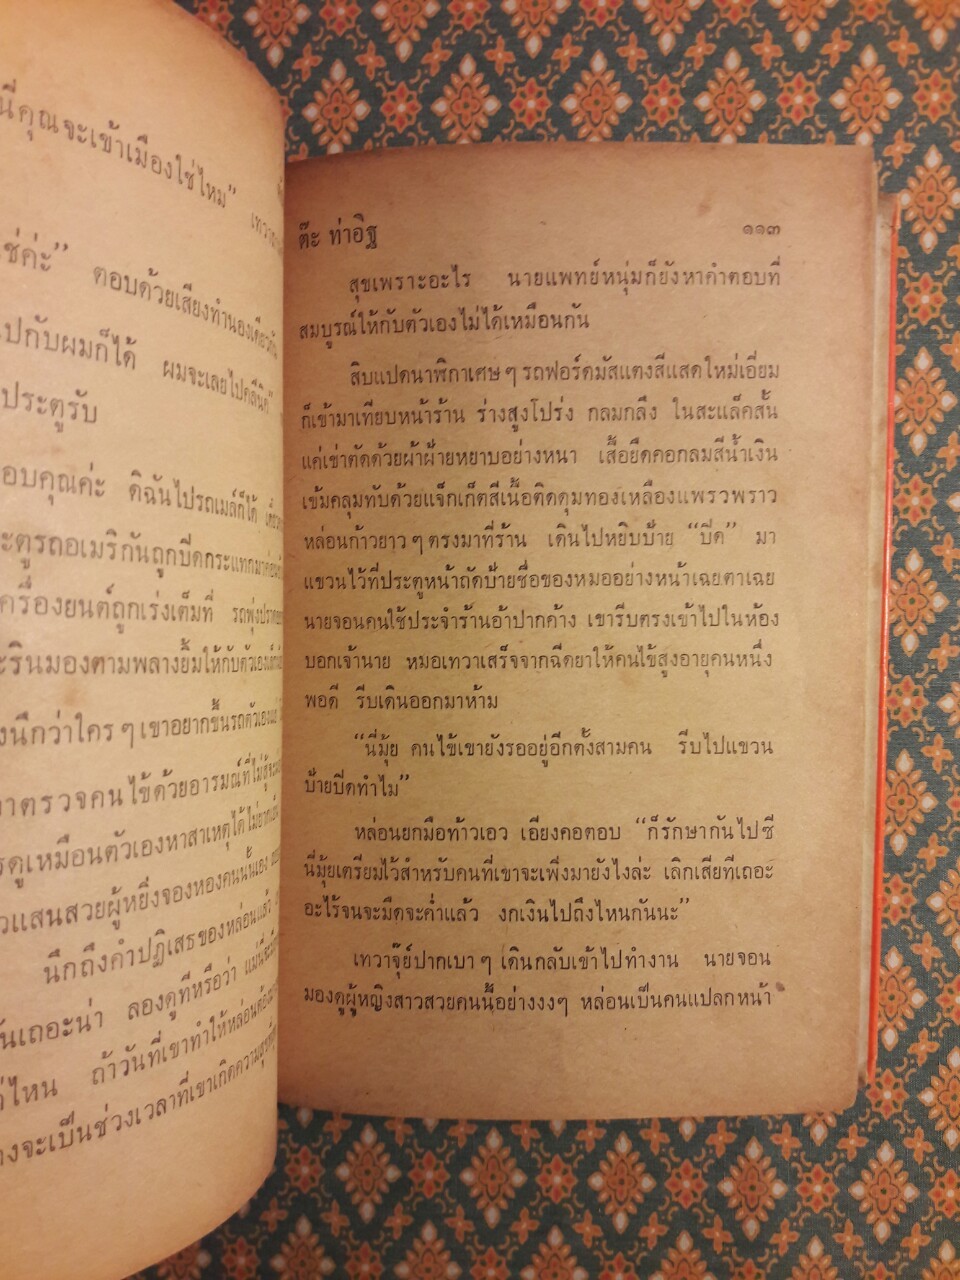 นี่คุณจะเข้าเมืองใช่ไหม”
ช่ค่ะ” ตอบด้วยเสียงทำนองเดียวกัน
ปกับผมก็ได้ ผมจะเลยไปคลีนิค”
ประตูรับ
อบคุณค่ะ ดิฉันไปรถเมล์ก็ได้
ะตูรถอเมริกันถูกปิดกระแทก
ครื่องยนต์ถูกเร่งเต็มที่ รถพุ่ง
ะรินมองตามพลางยิ้มให้กับตัวเอง
งนึกว่าใครๆ เขาอยากขึ้นรถตัวเอง
าตรวจคนไข้ด้วยอารมณ์ที่ไม่สู้
รดูเหมือนตัวเองหาสาเหตุได้ไม่ยาก
วแสนสวยผู้หยิ่งจองหองคนนั้นเอง
นึกถึงคำปฏิเสธของหล่อนแล้ว
นเถอะน่า ลองดูทีหรือว่า
ค่ไหน ถ้าวันที่เขาทำให้หล่อนต้อง
างจะเป็นช่วงเวลาที่เขาเกิดความสุข
ต๊ะ ท่าอิฐ ๑๑๓
สุขเพราะอะไร นายแพทย์หนุ่มก็ยังหาคำตอบที่
สมบูรณ์ให้กับตัวเองไม่ได้เหมือนกัน
สิบแปดนาฬิกาเศษๆ รถฟอร์ดมัสแตงสีแสดใหม่เอี่ยม
ก็เข้ามาเทียบหน้าร้าน ร่างสูงโปร่ง กลมกลึง ในสะแล็คสั้น
แค่เข่าตัดด้วยผ้าฝ้ายหยาบอย่างหนา เสื้อยืดคอกลมสีน้ำเงิน
เข้มคลุมทับด้วยแจ็กเก็ตสีเนื้อติดดุมทองเหลืองแพรวพราว
หล่อนก้าวยาวๆ ตรงมาที่ร้าน เดินไปหยิบป้าย “ปิด” มา
แขวนไว้ที่ประตูหน้าถัดป้ายชื่อของหมออย่างหน้าเฉยตาเฉย
นายจอนคนใช้ประจำร้านอ้าปากค้าง เขารีบตรงเข้าไปในห้อง
บอกเจ้านาย หมอเทวาเสร็จจากฉีดยาให้คนไข้สูงอายุคนหนึ่ง
พอดี รีบเดินออกมาห้าม
“นี่มุ้ย คนไข้เขายังรออยู่อีกตั้งสามคน รีบไปแขวน
ป้ายปิดทำไม”
หล่อนยกมือท้าวเอว เอียงคอตอบ “ก็รักษากันไปซี
นี่มุ้ยเตรียมไว้สำหรับคนที่เขาจะเพิ่งมายังไงล่ะ เลิกเสียทีเถอะ
อะไร้จนจะมืดจะค่ำแล้ว งกเงินไปถึงไหนกันนะ”
เทวาจุ๊ย์ปากเบาๆ เดินกลับเข้าไปทำงาน นายจอน
มองดูผู้หญิงสาวสวยคนนี้อย่างงงๆ หล่อนเป็นคนแปลกหน้า